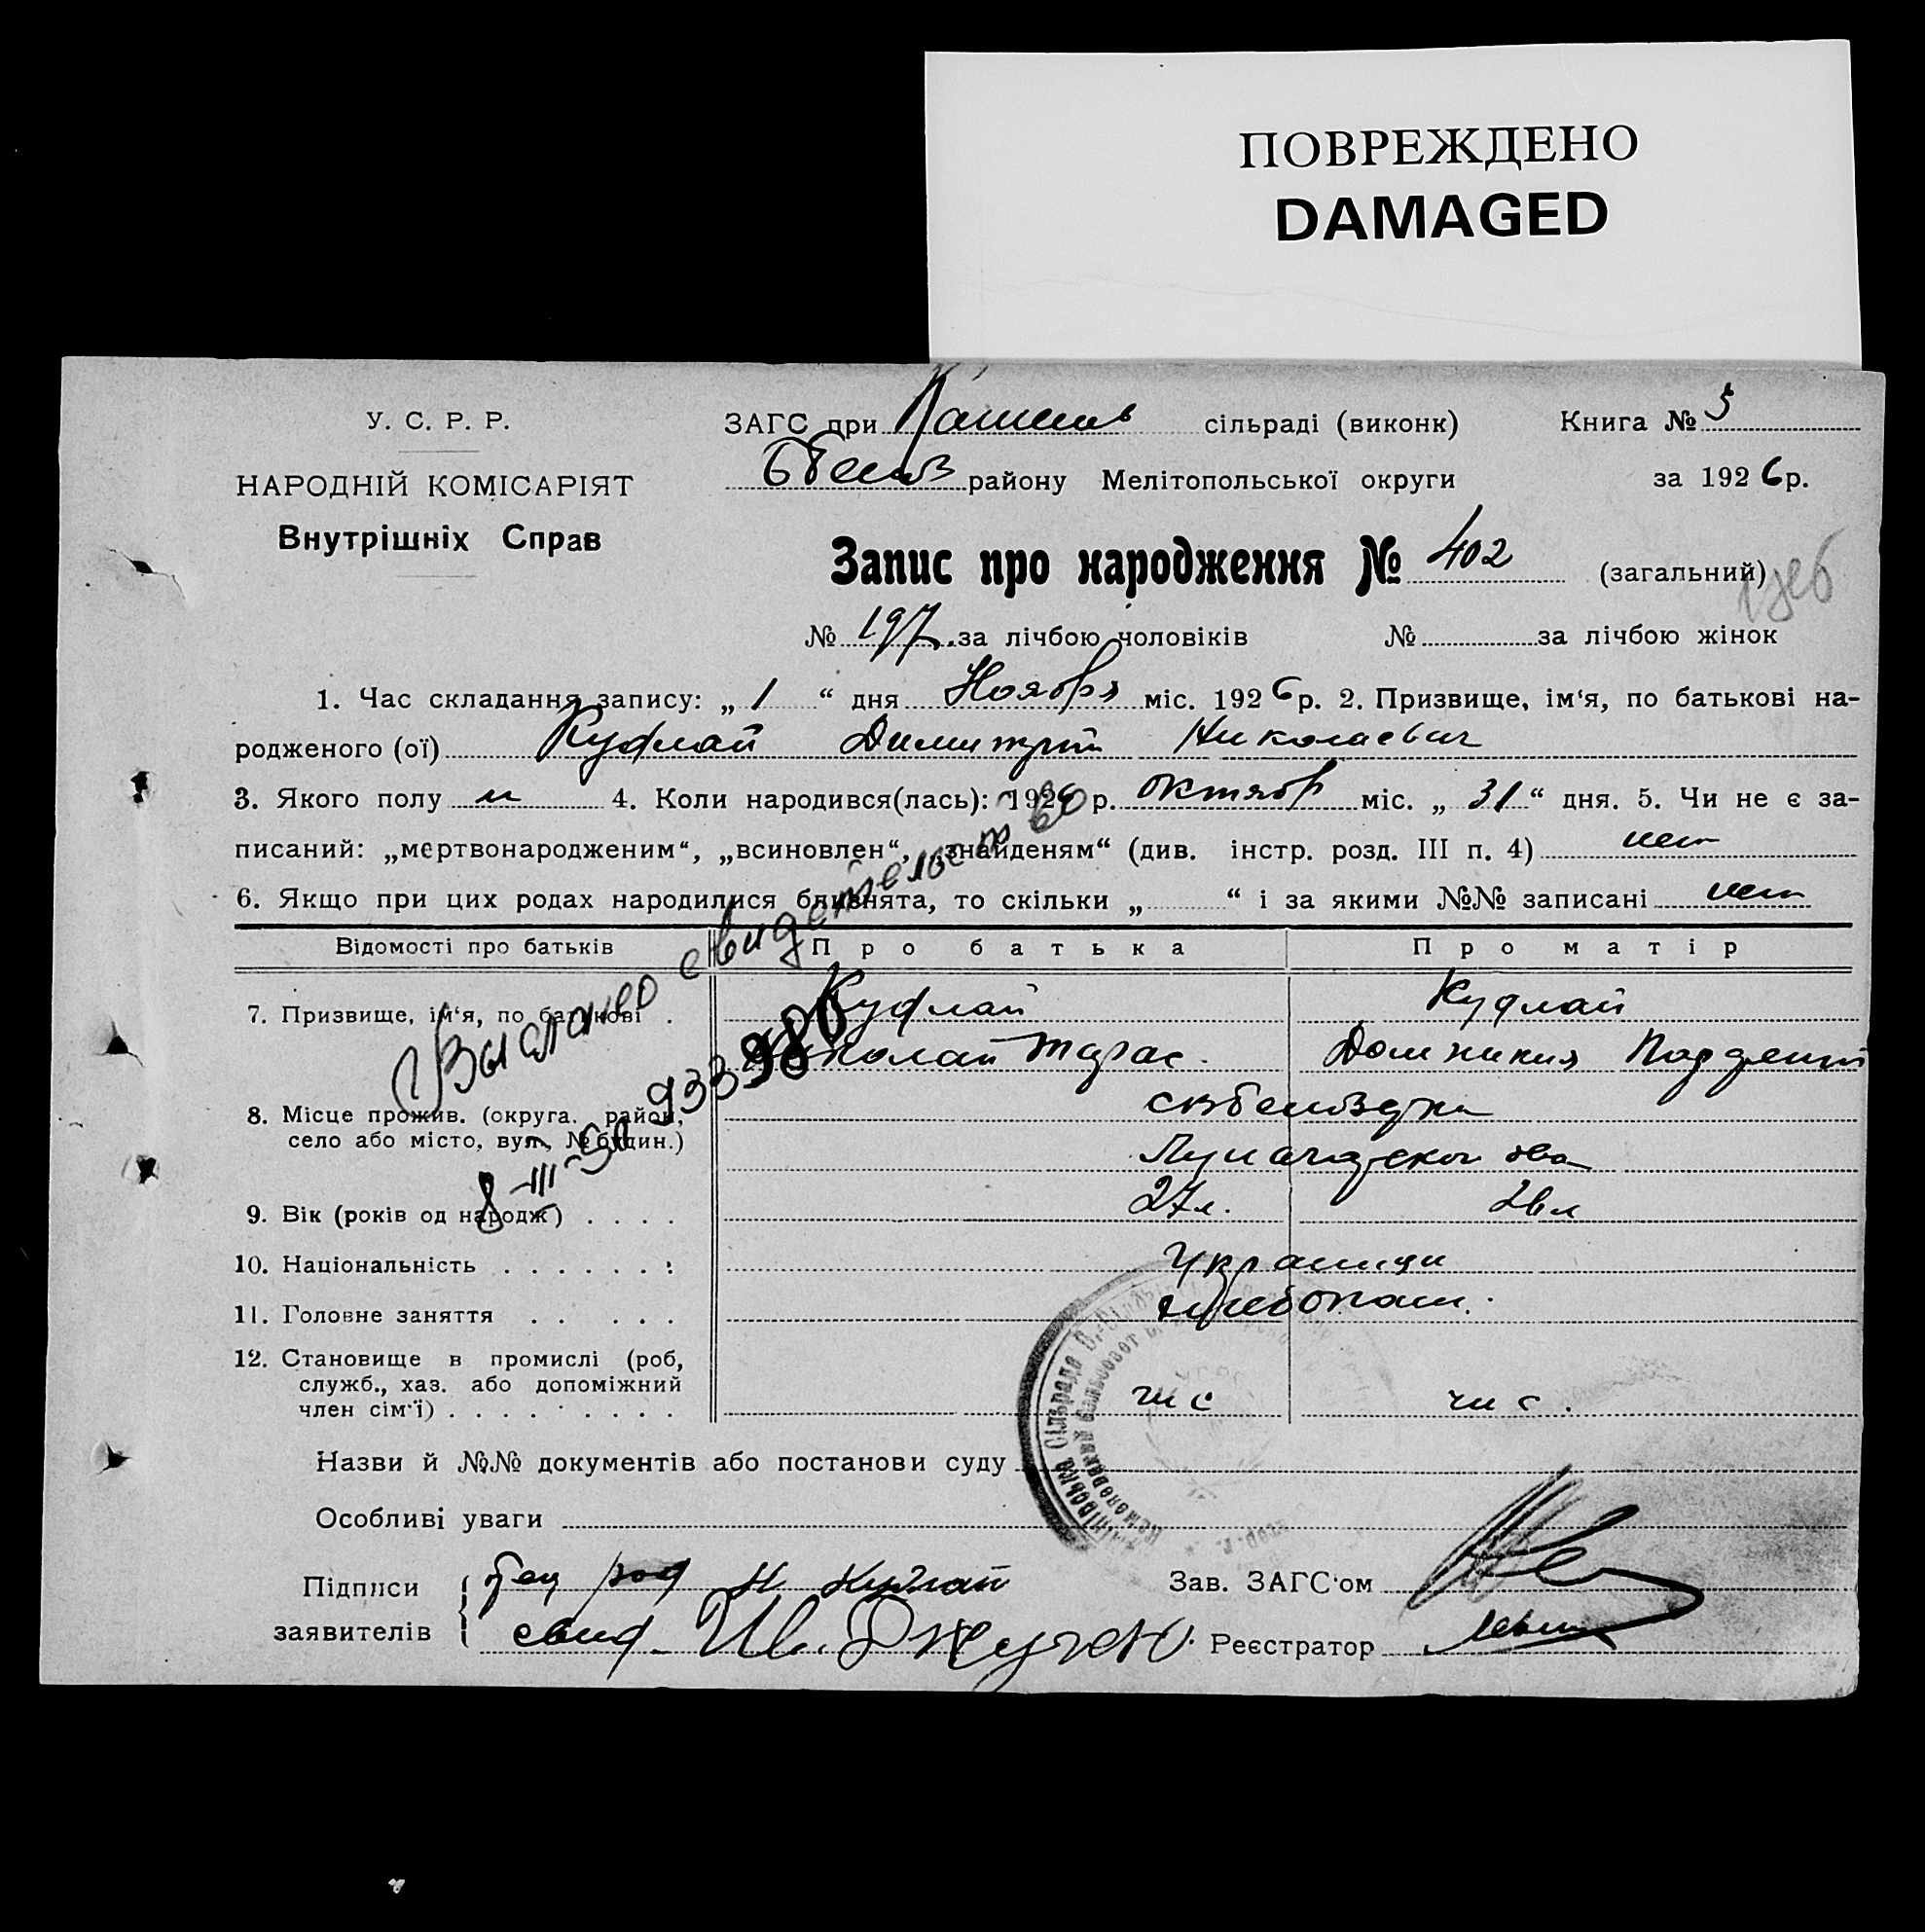 ПОВРЕЖДЕНО
DAMAGED
У. С. Р. Р.
НАРОДНІЙ КОМІСАРІЯТ
Внутрішніх Справ
ЗАГС при сільраді (виконк) Книга № 5
району Мелітопольської округи за 1926 р.
Запис про народження № 402 (загальний)
№ 197 за лічбою чоловіків № за лічбою жінок
1. Час складання запису: „ 1 “ дня Ноября міс. 1926 р. 2. Призвище, ім‘я, по батькові на-
родженого (ої) Куфлай Димитрий Николаевич
3. Якого полу м 4. Коли народився(лась): 1926 р. октябр міс. „ 31 “ дня. 5. Чи не є за-
писаний: „мертвонародженим“, „всиновлен“, „знайденям“ (див. інстр. розд. III п. 4) нет
6. Якщо при цих родах народилися близнята, то скільки „ “ і за якими №№ записані нет
Відомості про батьків Про батька Про матір
7. Призвище, ім‘я, по батькові . Куфлай Куфлай
Николай Тарас. Домникия
8. Місце прожив. (округа, район,
село або місто, вул., № будин.)
9. Вік (років од народж) . . . . 27 л. 26 л
10. Національність . . . . . . : Украинци
11. Головне заняття . . . . . хлебопаш.
12. Становище в промислі (роб,
служб., хаз. або допоміжний
член сім‘ї) . . . . . . . . . чл с чл с.
Выдано свидетельство
8-III-50 933980
Назви й №№ документів або постанови суду
Особливі уваги
Підписи отец род Н Куфлай Зав. ЗАГС‘ом
заявителів свид. Ив. Реєстратор